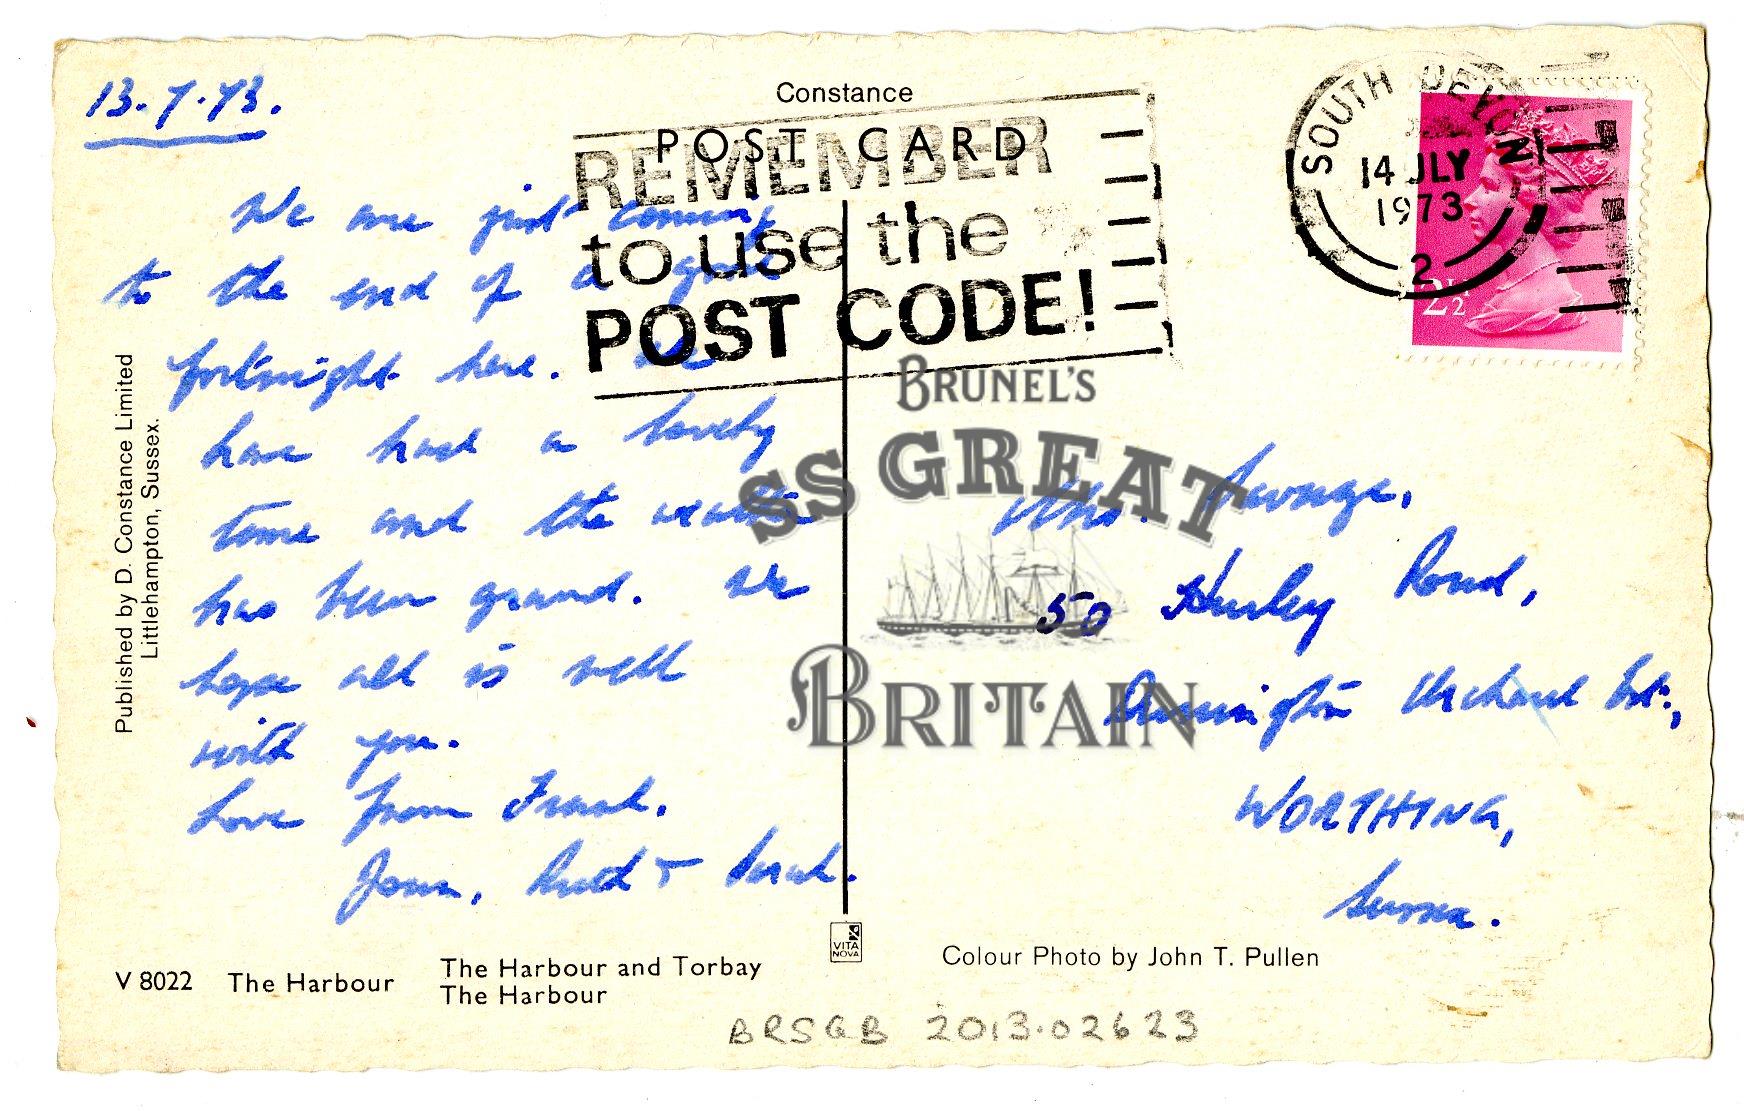 13.7.73.
We are just coming
to the end of a
fortnight here. We
have had a lovely
time and the weather
has been grand. We
hope all is well
with you.
Love from Frank,
Joan, Ruth + Sarah.
Constance
POST CARD
REMEMBER
to use the
POST CODE!
SOUTH DEVON
14 JLY
1973
2
2½
BRUNEL'S
SS GREAT
BRITAIN
Mrs. Savage,
50 Hurley Road,
Durrington Orchard Est.,
WORTHING,
Sussex.
Published by D. Constance Limited
Littlehampton, Sussex.
V 8022 The Harbour
The Harbour and Torbay
The Harbour
VITA
NOVA
Colour Photo by John T. Pullen
BRSGB 2013.02623